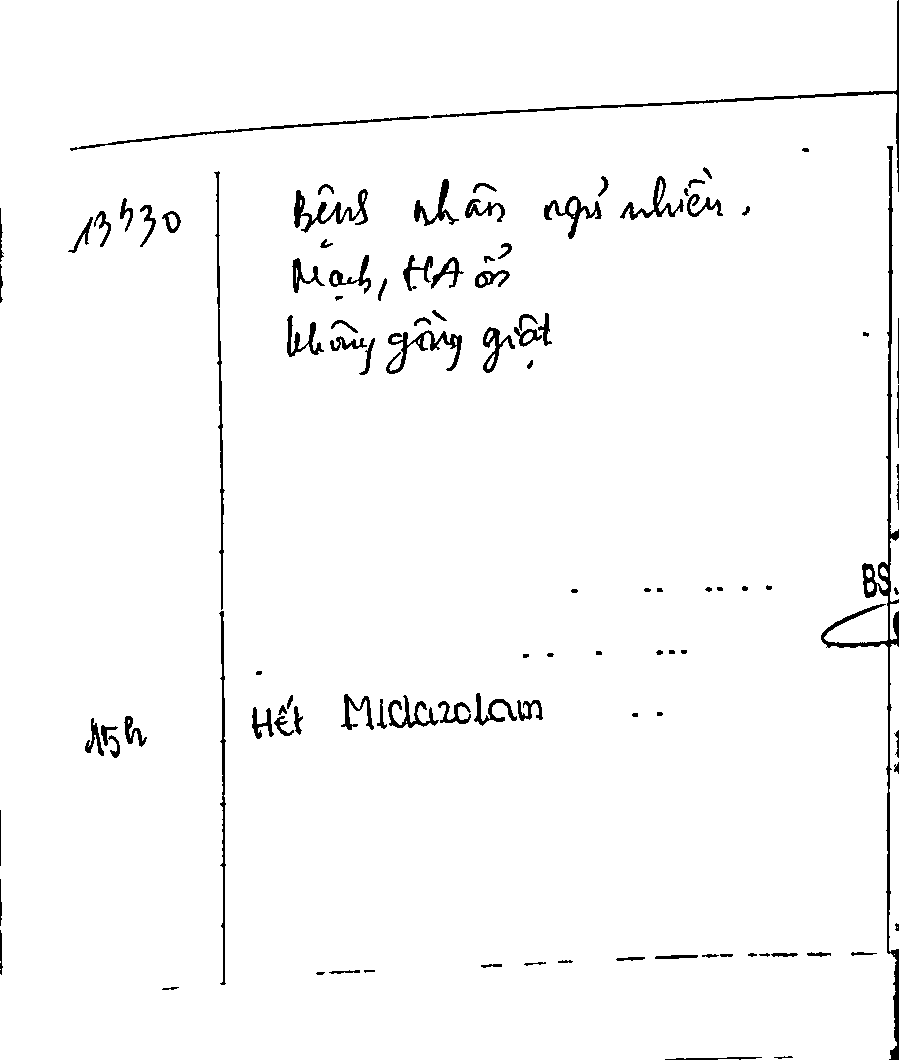 13h30 Bệnh nhân ngủ nhiều.
Mạch, HA ổn
không gồng giật
BS.
15h Hết Midazolam